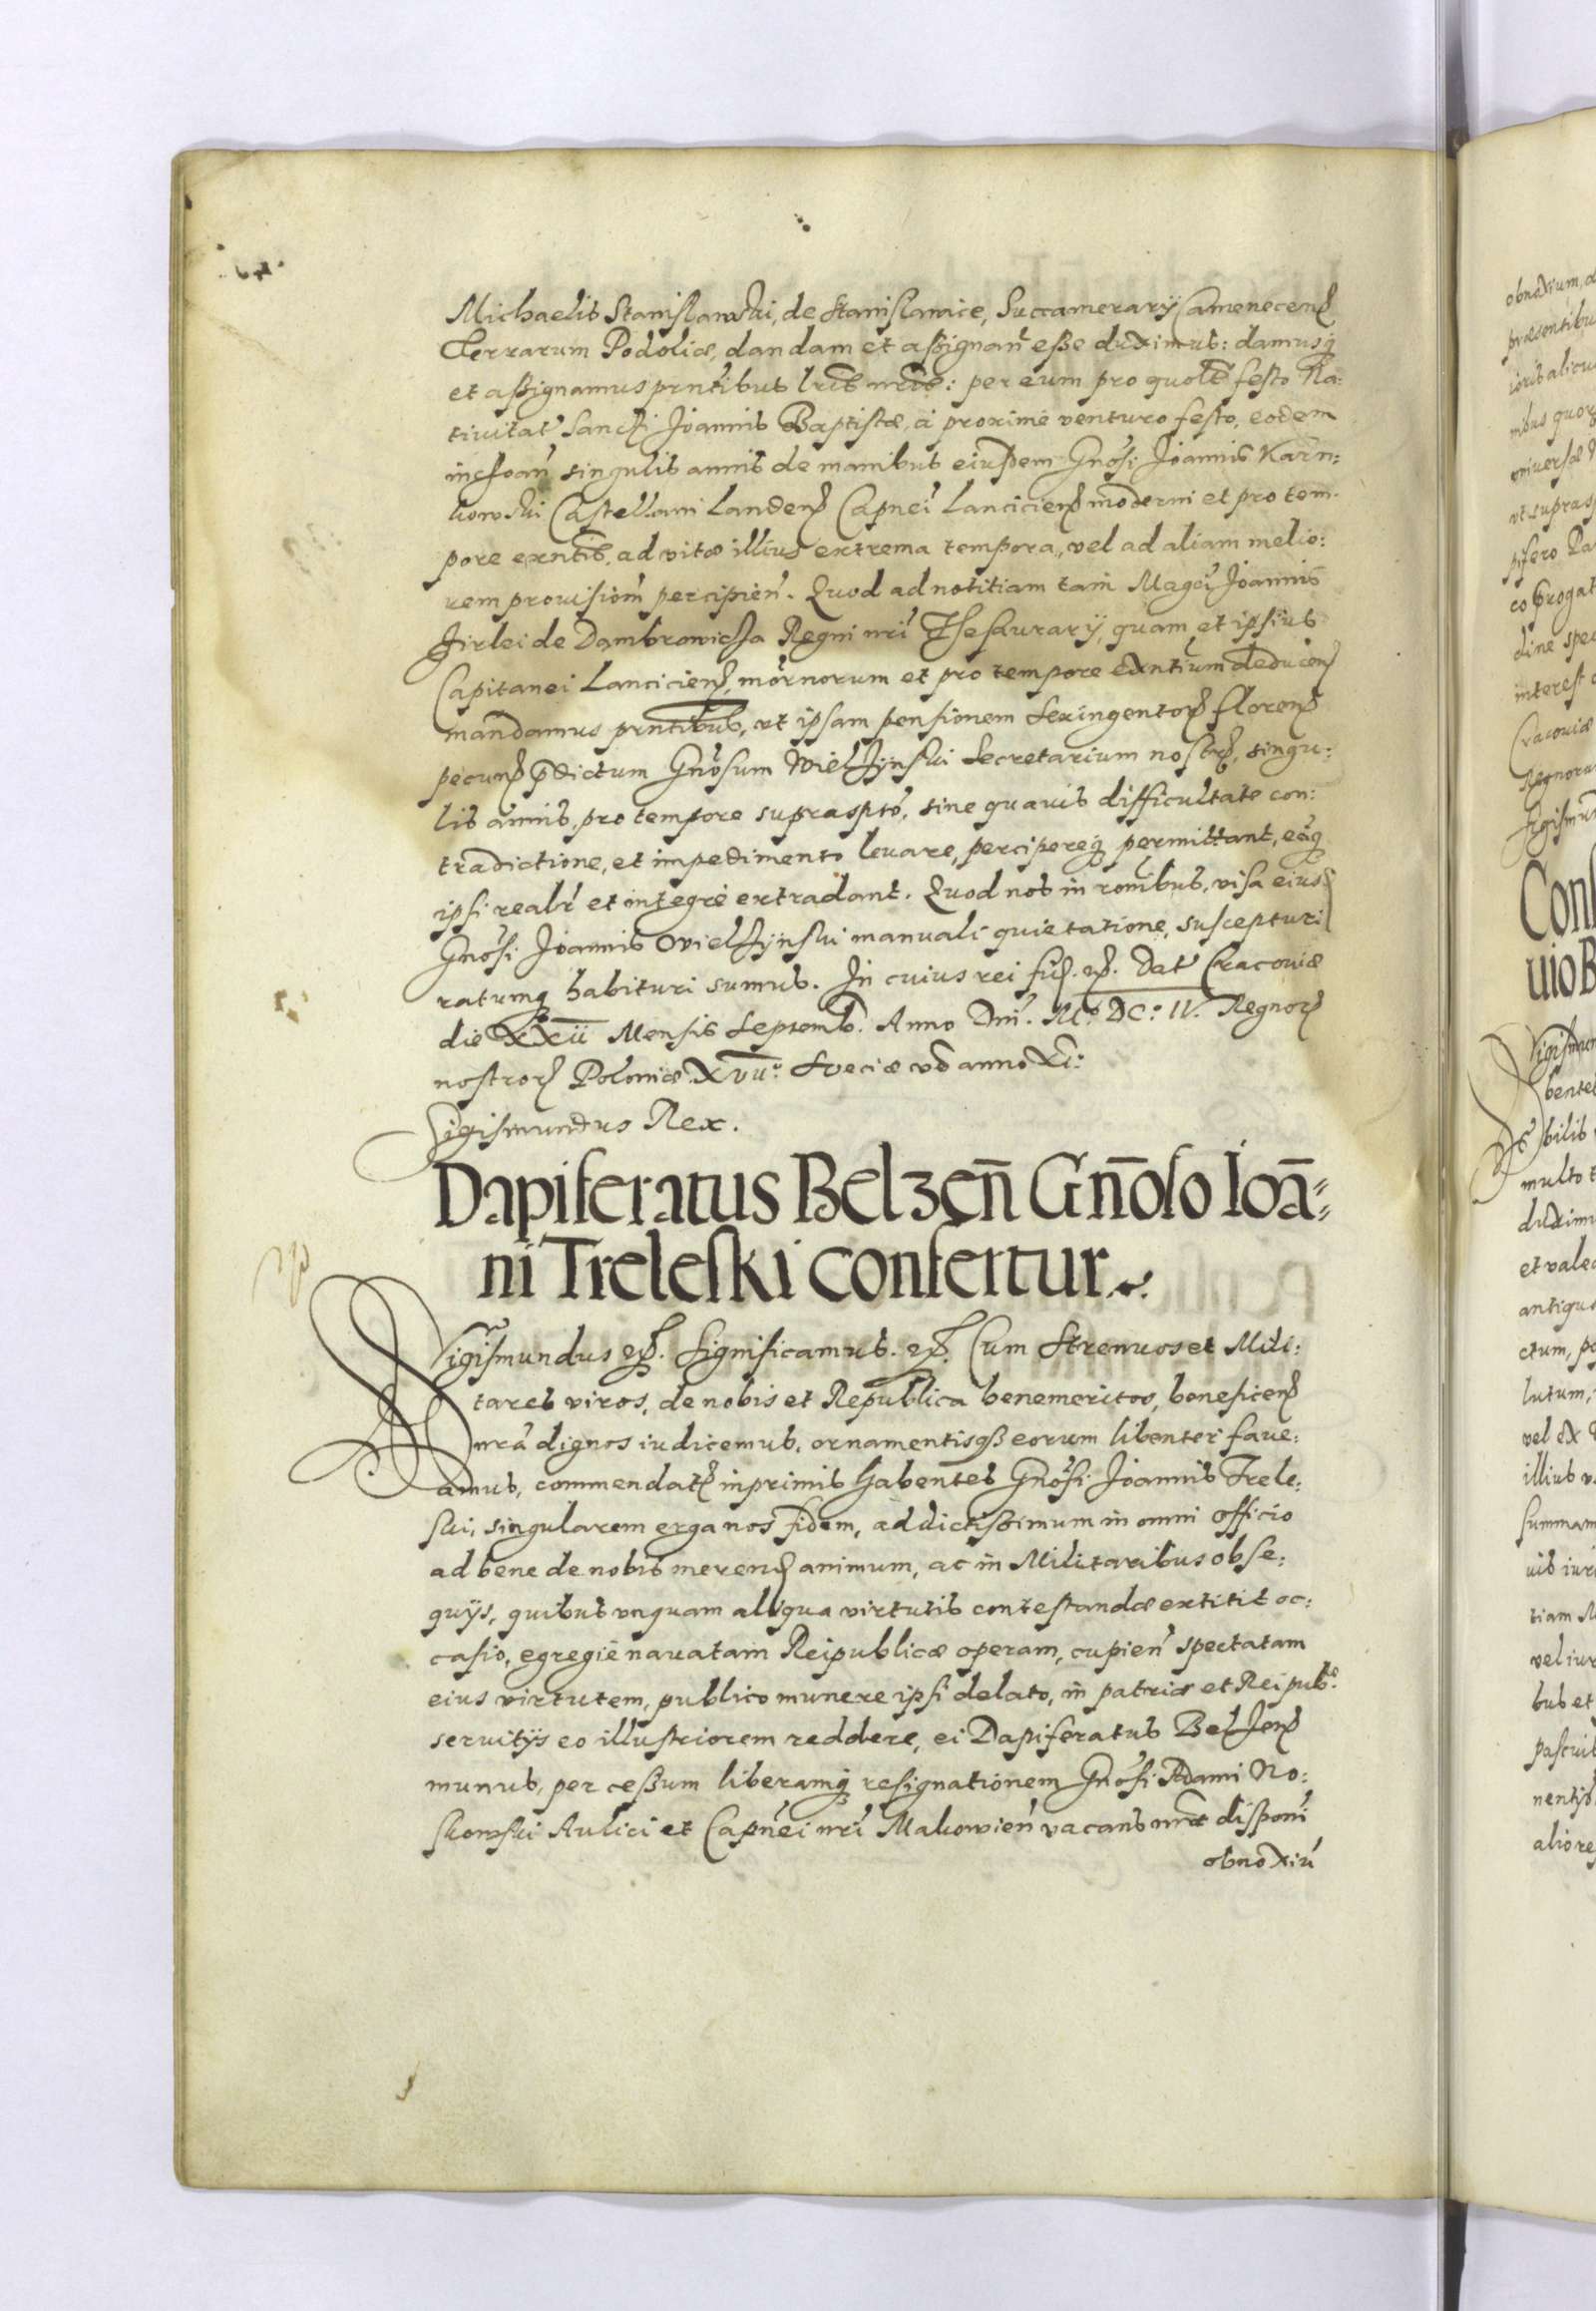 Michaelis Stanislawski, de Stanislawice, Succamerarij Camenecen
Terrarum Podoliæ, dandam et assignan̄ esse duximus: damusq́
et assignamus prntibus lris nris: per eum pro quolt festo Na:
tiuitat Sancti Joannis Baptistæ, á proximé venturo festo, eodem
inchoan̄ singulis annis de manibus eiusdem Gnosi Joannis Karn:
kowski Castellani Landen Capnei Lancicien moderni et pro tem
pore exntis, ad vitæ illius extrema tempora, vel ad aliam melio:
rem prouisionem percipien. Quod ad notitiam tam Magci Joannis
Firlei de Dambrowicza Regni nri Thesaurarij, quam et ipsius
Capitanei Lancicien, mornorum et pro tempore exntium deducen
mandamus prntibus, vt ipsam pensionem Sexingentor floren
pecun p̄dictum Gnosum Wielżynski Secretarium nostr, singu:
lis annis, pro tempore suprascpto, sine quauis difficultate con:
tradictione, et impedimento leuare, percipereq́ permittant, eáq́
ipsi realr et integré extradant. Quod nos in ronibus, visa eius
Gnosi Joannis Wielżynski manuali quietatione, suscepturi
ratumq́ habituri sumus. In cuius rei fid. etc. Dat Cracouiæ
die XXII Mensis Septemb. Anno Dni. Mº. DCº. IV. Regnor
nostror Poloniæ XVIIº. Sueciæ vo anno XIº:
Sigismundus Rex.
Dapiferatus Belzen̄ Gn̄oso Ioā=
ni Treleski confertur.
Sigismundus etc. Significamus. etc. Cum Strenuos et Mili:
tares viros, de nobis et Republica benemeritos, beneficen
nrá dignos iudicemus, ornamentisq́ eorum libenter faue:
amus, commendat inprimis habentes Gnosi Joannis Trele:
ski, singularem erga nos fidem, addictissimum in omni officio
ad bene de nobis meren animum, ac in Militaribus obse:
quijs, quibus vnquam aliqua virtutis contestandæ extitit oc:
casio, egregié nauatam Reipublicæ operam, cupien̄ spectatam
eius virtutem, publico munere ipsi delato, in patriæ et Reipubcæ
seruitijs eo illustriorem reddere, ei Dapiferatus Belzen
munus, per cessum liberamq́ resignationem Gnosi Adami No:
skowski Aulici et Capnei nri Makowien̄ vacans nrae disponi
obnoxiú